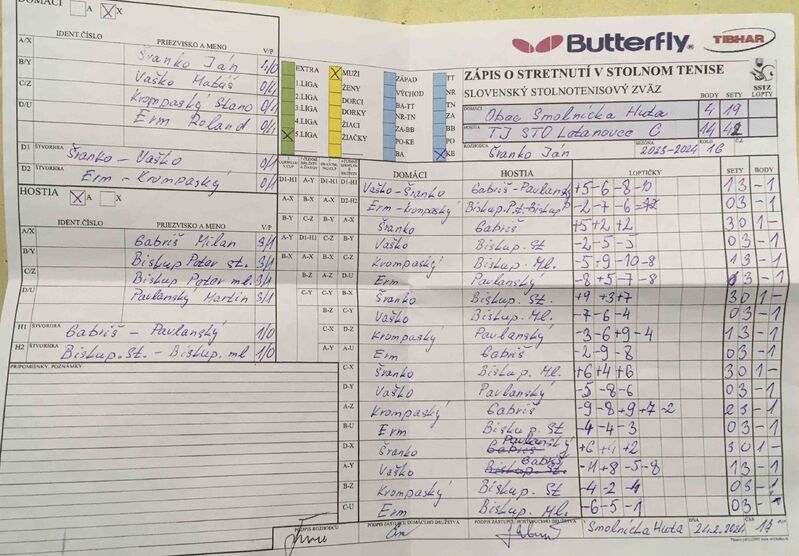 DOMÁCI A X
Butterfly TIBHAR
IDENT.ČÍSLO PRIEZVISKO A MENO V/P
A/X Šranko Ján 4/0
B/Y Vaško Matúš 0/4
C/Z Krompaský Stano 0/4
D/U Erm Roland 0/4
D1 ŠTVORHRA Šranko - Vaško 0/1
D2 ŠTVORHRA Erm - Krompaský 0/1
HOSTIA X A
IDENT.ČÍSLO PRIEZVISKO A MENO V/P
A/X Gabriš Milan 3/1
B/Y Biskup Peter st. 3/1
C/Z Biskup Peter ml. 3/1
D/U Pavlanský Martin 3/1
H1 ŠTVORHRA Gabriš - Pavlanský 1/0
H2 ŠTVORHRA Biskup. St. - Biskup. ml 1/0
PRIPOMIENKY, POZNÁMKY
EXTRA
1.LIGA
2.LIGA
3.LIGA
4.LIGA
X 5.LIGA
X MUŽI
ŽENY
DORCI
DORKY
ŽIACI
ŽIAČKY
ZÁPAD TT
VÝCHOD NR
BA-TT TN
NR-TN ZA
ZA-BB BB
PO-KE PO
BA X KE
ZÁPIS O STRETNUTÍ V STOLNOM TENISE
SLOVENSKÝ STOLNOTENISOVÝ ZVÄZ SSTZ
BODY SETY LOPTY
DOMÁCI Obec Smolnícka Huta 4 19
HOSTIA TJ STO Letanovce C 14 42
ROZHODCA Šranko Ján SEZÓNA 2023-2024 KOLO 16 Č.Z.
DOMÁCI HOSTIA LOPTIČKY SETY BODY
Vaško-Šranko Gabriš-Pavlanský +5 -6 -8 -10 1 3 - 1
Erm-Krompaský Biskup.P.st.-Biskup P -2 -7 -6 0 3 - 1
Šranko Gabriš +5 +2 +2 3 0 1 -
Vaško Biskup. St -2 -5 -5 0 3 - 1
Krompaský Biskup. Ml. -5 +9 -10 -8 1 3 - 1
Erm Pavlanský -8 +5 -7 -8 3 - 1
Šranko Biskup. St. +9 +3 +7 3 0 1 -
Vaško Biskup. Ml. -7 -6 -4 0 3 - 1
Krompaský Pavlanský -3 -6 +9 -4 1 3 - 1
Erm Gabriš -2 -9 -8 0 3 - 1
C-X Šranko Biskup. Ml. +6 +4 +6 3 0 1 -
D-Y Vaško Pavlanský -5 -8 -6 0 3 - 1
A-Z Krompaský Gabriš -9 -8 +9 +7 -2 2 3 - 1
B-U Erm Biskup. St -4 -4 -3 0 3 - 1
D-X Šranko Pavlanský +6 +4 +2 3 0 1 -
A-Y Vaško Gabriš -11 +8 -5 -8 1 3 - 1
B-Z Krompaský Biskup. St -4 -2 -4 0 3 - 1
C-U Erm Biskup. Ml. -6 -5 -1 0 3 - 1
PODPIS ROZHODCU PODPIS ZÁSTUPCU DOMÁCEHO DRUŽSTVA PODPIS ZÁSTUPCU HOSŤUJÚCEHO DRUŽSTVA V Smolnícka Huta DŇA 24.2.2024 ČAS 13